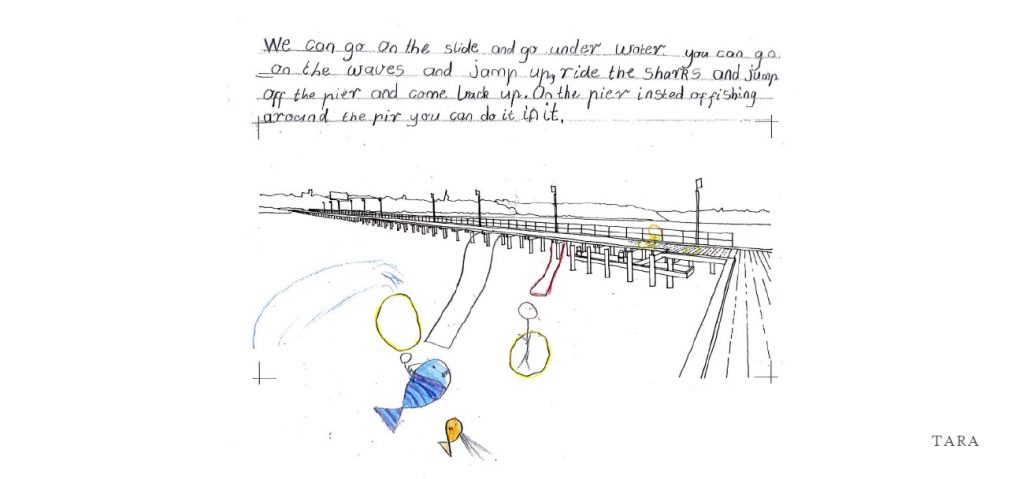 We can go on the slide and go under water. you can go
on the waves and jamp up, ride the sharks and jump
off the pier and come back up. On the pier insted of fishing
around the pir you can do it in it.
TARA